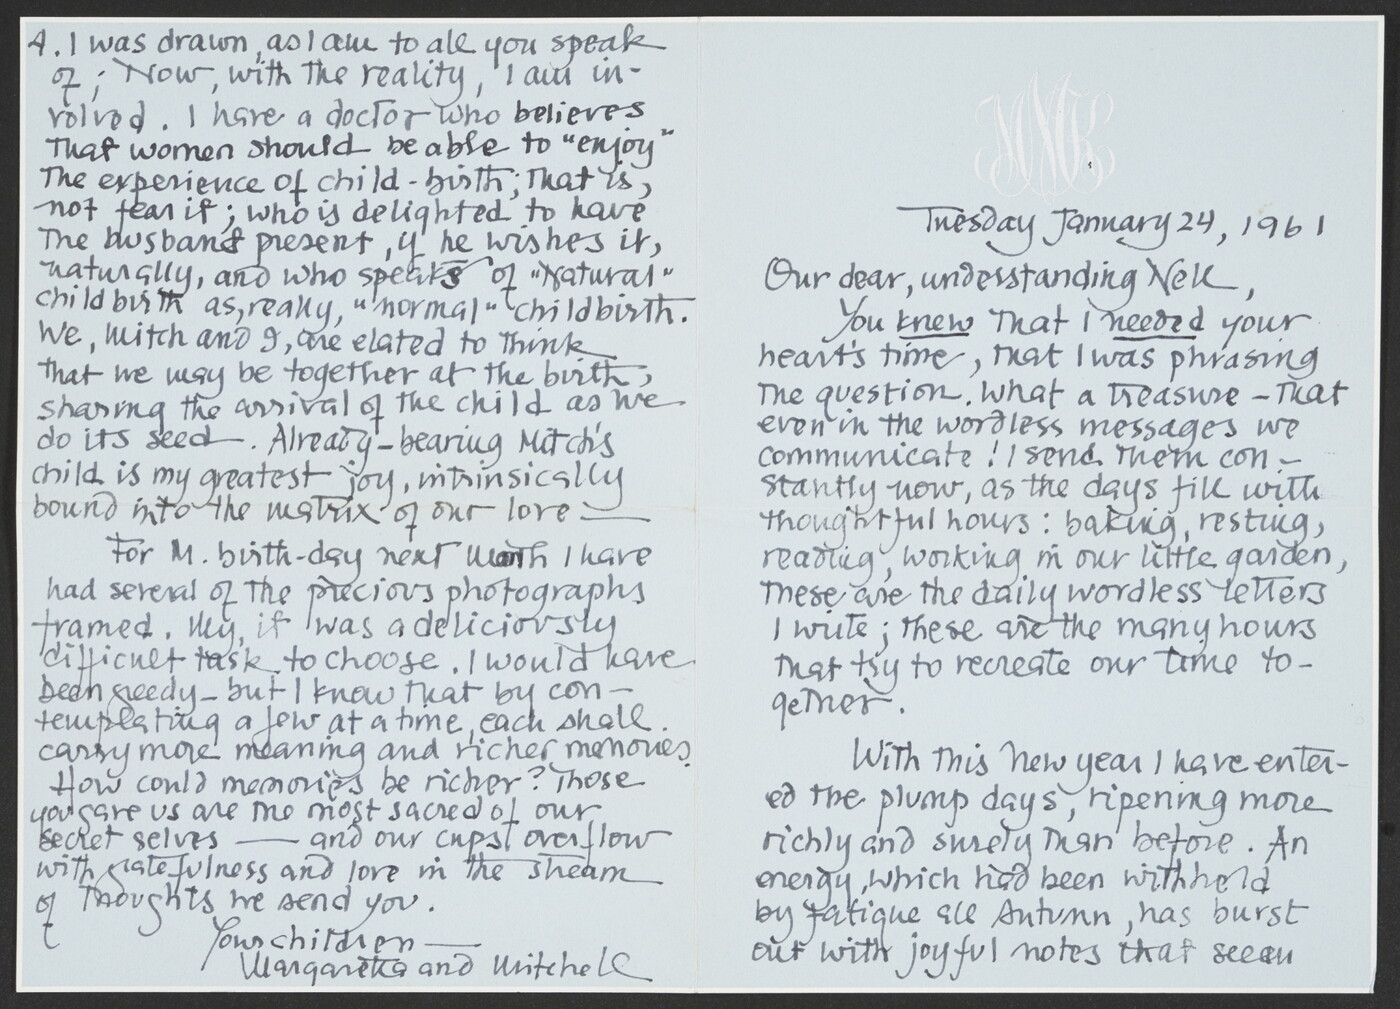 4. I was drawn, as I am to all you speak
of; Now, with the reality, I am in-
volved. I have a doctor who believes
that women should be able to "enjoy"
the experience of child-birth; that is,
not fear it; who is delighted to have
the husband present, if he wishes it,
naturally, and who speaks of "Natural"
childbirth as, really, "normal" childbirth.
We, Mitch and I, are elated to think
that we may be together at the birth,
sharing the arrival of the child as we
do its seed. Already - bearing Mitch's
child is my greatest joy, intrinsically
bound into the matrix of our love —
For M. birth-day next month I have
had several of the precious photographs
framed. My, it was a deliciously
difficult task to choose. I would have
been greedy - but I know that by con-
templating a few at a time, each shall
carry more meaning and richer memories.
How could memories be richer? Those
you gave us are the most sacred of our
secret selves — and our cups overflow
with gratefulness and love in the stream
of thoughts we send you.
Your children —
Margaretta and Mitchell
MMK
Tuesday January 24, 1961
Our dear, understanding Nell,
You knew that I needed your
heart's time, that I was phrasing
the question. What a treasure - that
even in the wordless messages we
communicate! I send them con-
stantly now, as the days fill with
thoughtful hours: baking, resting,
reading, working in our little garden,
these are the daily wordless letters
I write; these are the many hours
that try to recreate our time to-
gether.
With this New year I have enter-
ed the plump days, ripening more
richly and surely than before. An
energy, which had been withheld
by fatigue all Autumn, has burst
out with joyful notes that seem